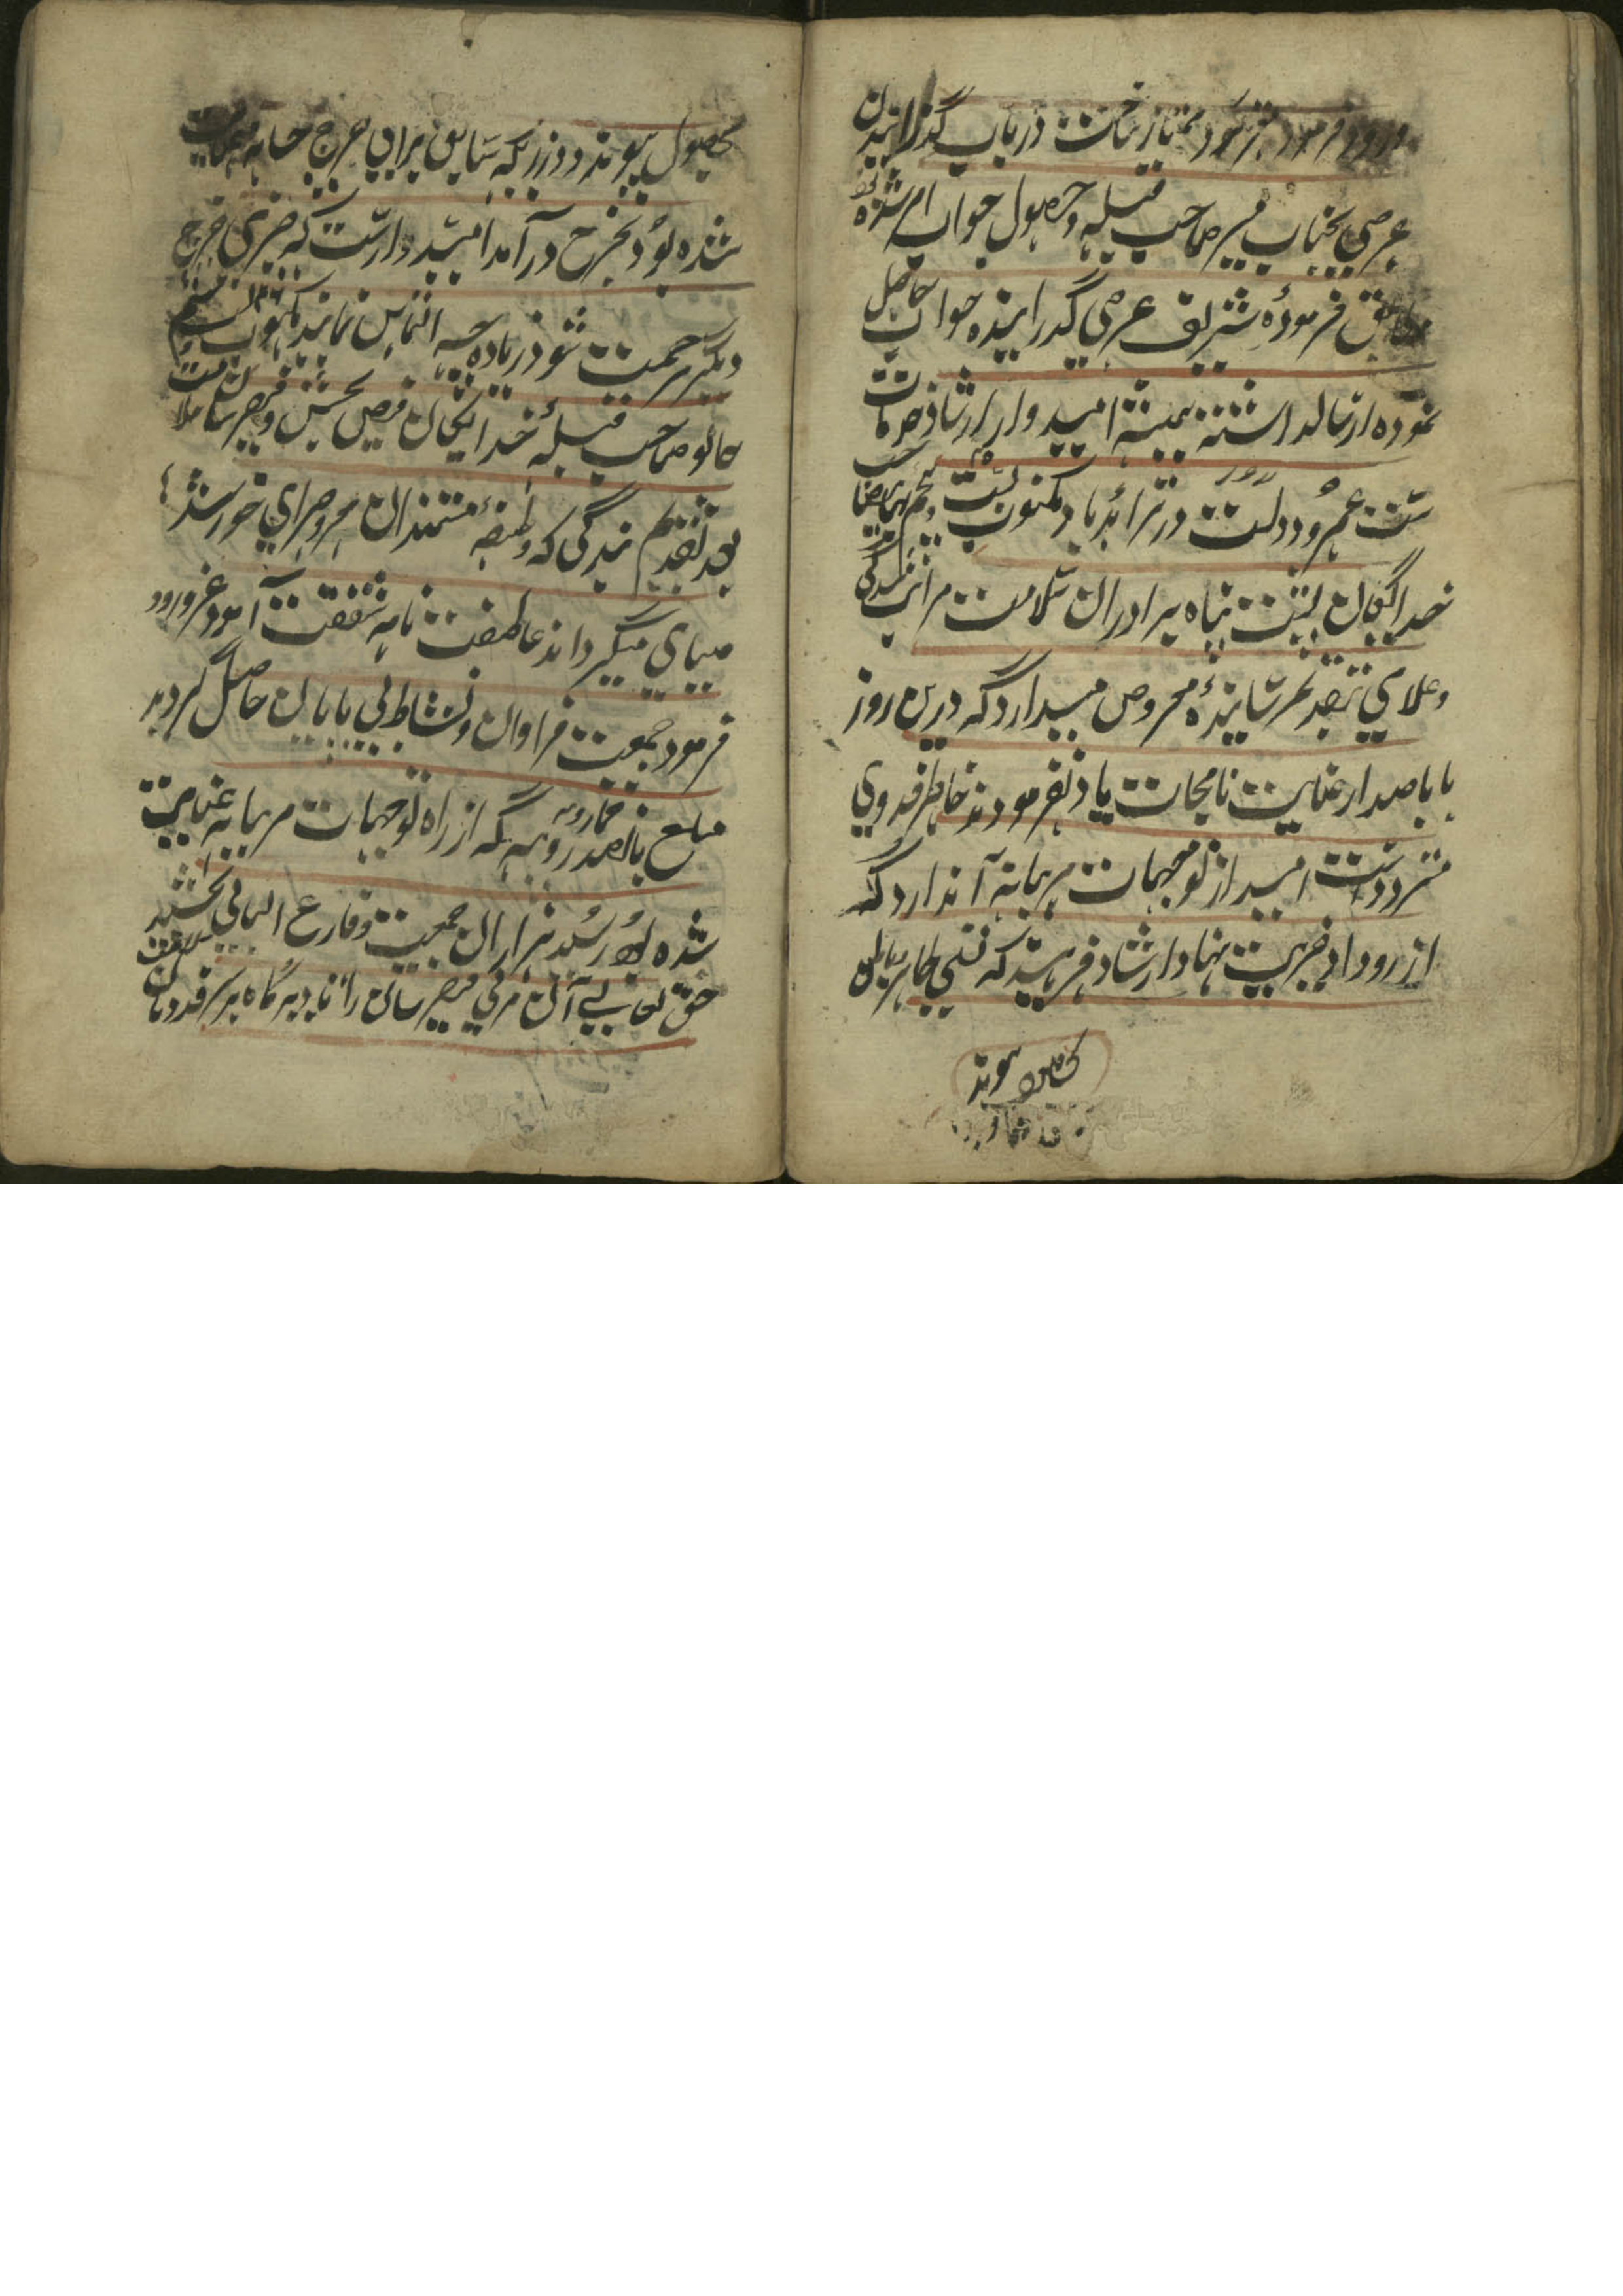 ورود فرمود ممتاز ساخت در باب گذرانیدن
عرضی بجناب میر صاحب قبله و حصول جواب ام شده
فرموده شریف عرضی گذرانیده جواب حاصل
نموده ارسالداشته همیشه امیدوار ارشاد خدمات
ست عمر و دولت در تزاید باد مکتوب بست
خدایگان پشت پناه برادران سلامت مراتب بندگی
بتقدیم رسانیده معروض میدارد که درین روز
با باصدار عنایت نامجات یاد نفرمودند خاطر فدوی
متردد ست امید از توجهات مربیانه آندارد که
از روداد خیریت نهاد ارشاد فرمایند که تسلی
بحصول پیوندد
بحصول پیوندد و زریکه سابق برای خرج خانه
شده بود بخرج در آمد امیدوارست که چیزی خرج
دیگر مرحمت شود زیاده چه التماس نماید مکتوب بست
خالو صاحب قبله خدایگان فیض بخش و فیض رسان سلامت
بعد تقدیم بندگی که وظیفه مستمندان معروضرای خورشید
ضیای میگرداند عاطفت نامه شفقت آمود عز ورود
فرمود جمعیت فراوان و نشاط بی پایان حاصل گردید
مبلغ پانصد روپیه که از راه توجهات مربیانه عنایت
شده بود رسید هزاران جمعیت و فارغ البالی بخشید
حق تعالی آن مربی فیض رسان را تا دیرگاه بر سر فدویان